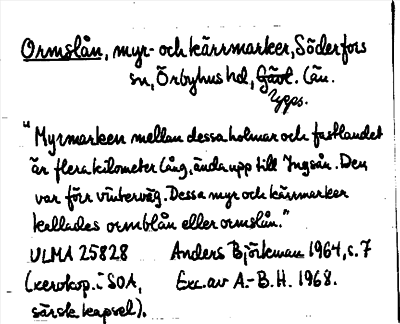 Ormslån, myr- och kärrmarker, Söderfors
sn, Örbyhus hd, Gävl. län.
Upps.
"Myrmarken mellan dessa holmar och fastlandet
är flera kilometer lång, ända upp till Ingsån. Den
var förr vinterväg. Dessa myr och kärrmarker
kallades ormblån eller ormslån."
ULMA 25828 Anders Björkman 1964, s. 7
(xerokop. i SOA, Exc. av A.-B. H. 1968.
särsk. kapsel).